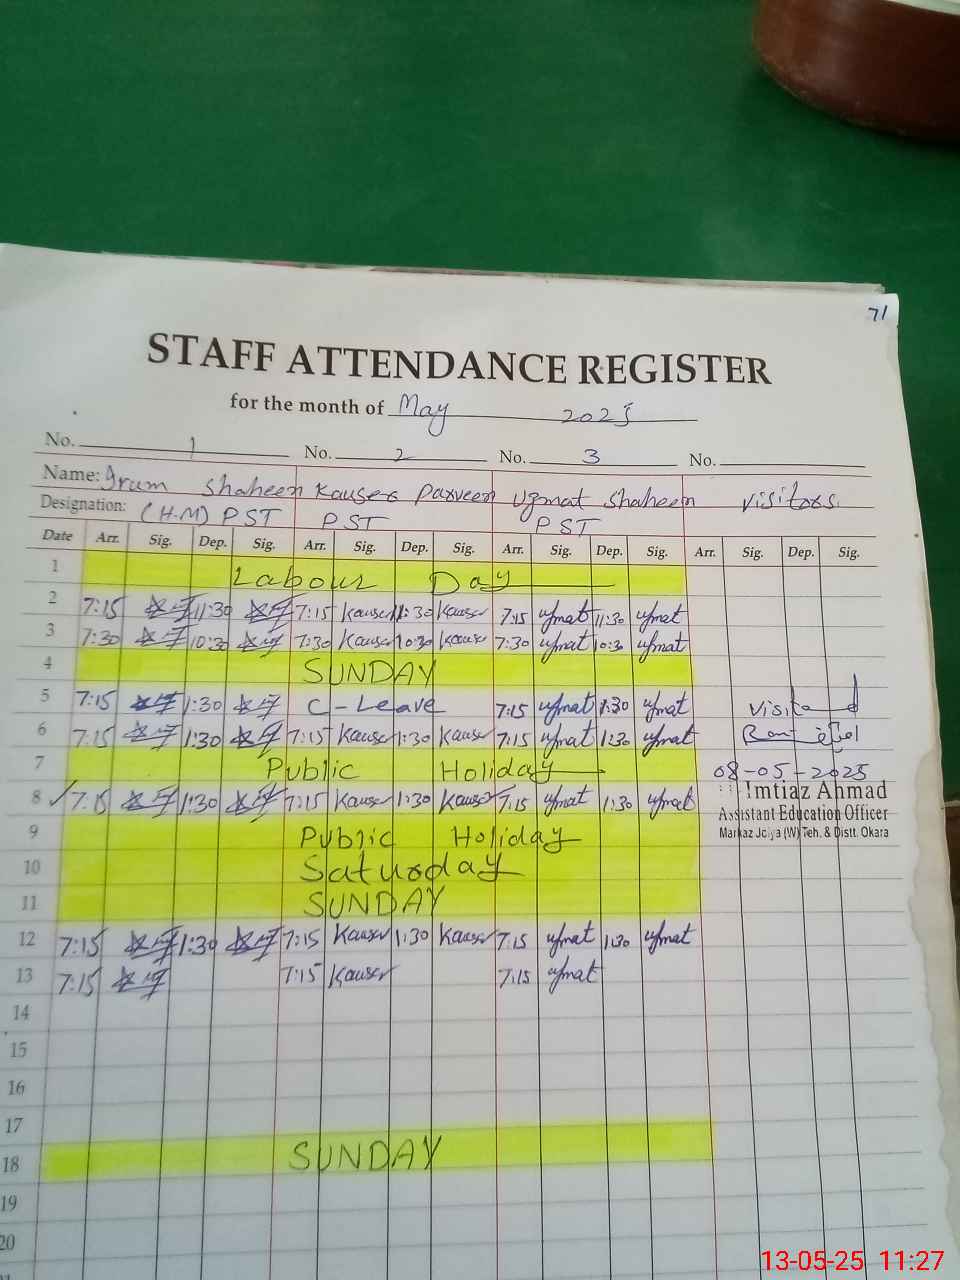 71
STAFF ATTENDANCE REGISTER
for the month of May 2025
No. 1 No. 2 No. 3 No.
Name: Irum Shaheen Kauser Parveen Uzmat Shaheen Visitors.
Designation: (H.M) PST PST PST
Date Arr. Sig. Dep. Sig. Arr. Sig. Dep. Sig. Arr. Sig. Dep. Sig. Arr. Sig. Dep. Sig.
1 Labour Day
2 7:15 11:30 7:15 Kauser 11:30 Kauser 7:15 uzmat 11:30 uzmat
3 7:30 10:30 7:30 Kauser 10:30 Kauser 7:30 uzmat 10:30 uzmat
4 SUNDAY
5 7:15 1:30 C-Leave 7:15 uzmat 1:30 uzmat Visited
6 7:15 1:30 7:15 Kauser 1:30 Kauser 7:15 uzmat 1:30 uzmat
7 Public Holiday 08-05-2025
8 7:15 1:30 7:15 Kauser 1:30 Kauser 7:15 uzmat 1:30 uzmat Imtiaz Ahmad
Assistant Education Officer
9 Public Holiday Markaz (W) Teh. & Distt. Okara
10 Saturday
11 SUNDAY
12 7:15 1:30 7:15 Kauser 1:30 Kauser 7:15 uzmat 1:30 uzmat
13 7:15 7:15 Kauser 7:15 uzmat
14
15
16
17
18 SUNDAY
19
20
13-05-25 11:27